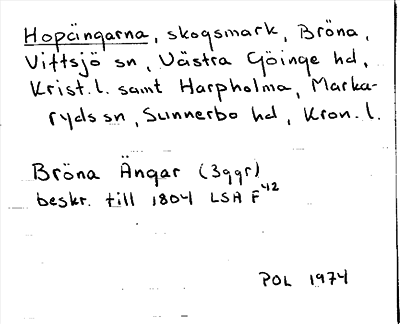 Hopängarna, skogsmark, Bröna,
Vittsjö sn, Västra Göinge hd,
Krist. l. samt Harpholma, Marka-
ryds sn, Sunnerbo hd, Kron. l.
Bröna Ängar (3ggr)
beskr. till 1804 LSA F42
POL 1974